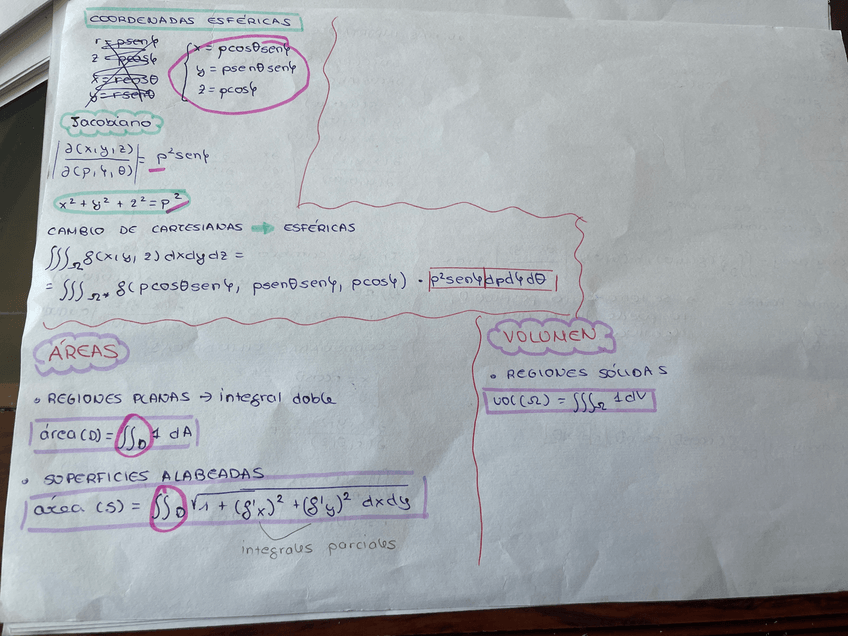 COORDENADAS ESFÉRICAS
r = ρsenφ
z = ρcosφ
x = rcosθ
y = rsenθ
x = ρcosθsenφ
y = ρsenθsenφ
z = ρcosφ
Jacobiano
|∂(x,y,z)/∂(ρ,φ,θ)| = ρ²senφ
x² + y² + z² = ρ²
CAMBIO DE CARTESIANAS → ESFÉRICAS
∭_Ω f(x,y,z) dxdydz =
= ∭_Ω* f(ρcosθsenφ, ρsenθsenφ, ρcosφ) · ρ²senφ dρdφdθ
ÁREAS
• REGIONES PLANAS → integral doble
área(D) = ∬_D 1 dA
• SUPERFICIES ALABEADAS
área (S) = ∬_D √1 + (f'x)² + (f'y)² dxdy
integrales parciales
VOLUMEN
• REGIONES SÓLIDAS
vol(Ω) = ∭_Ω 1 dV